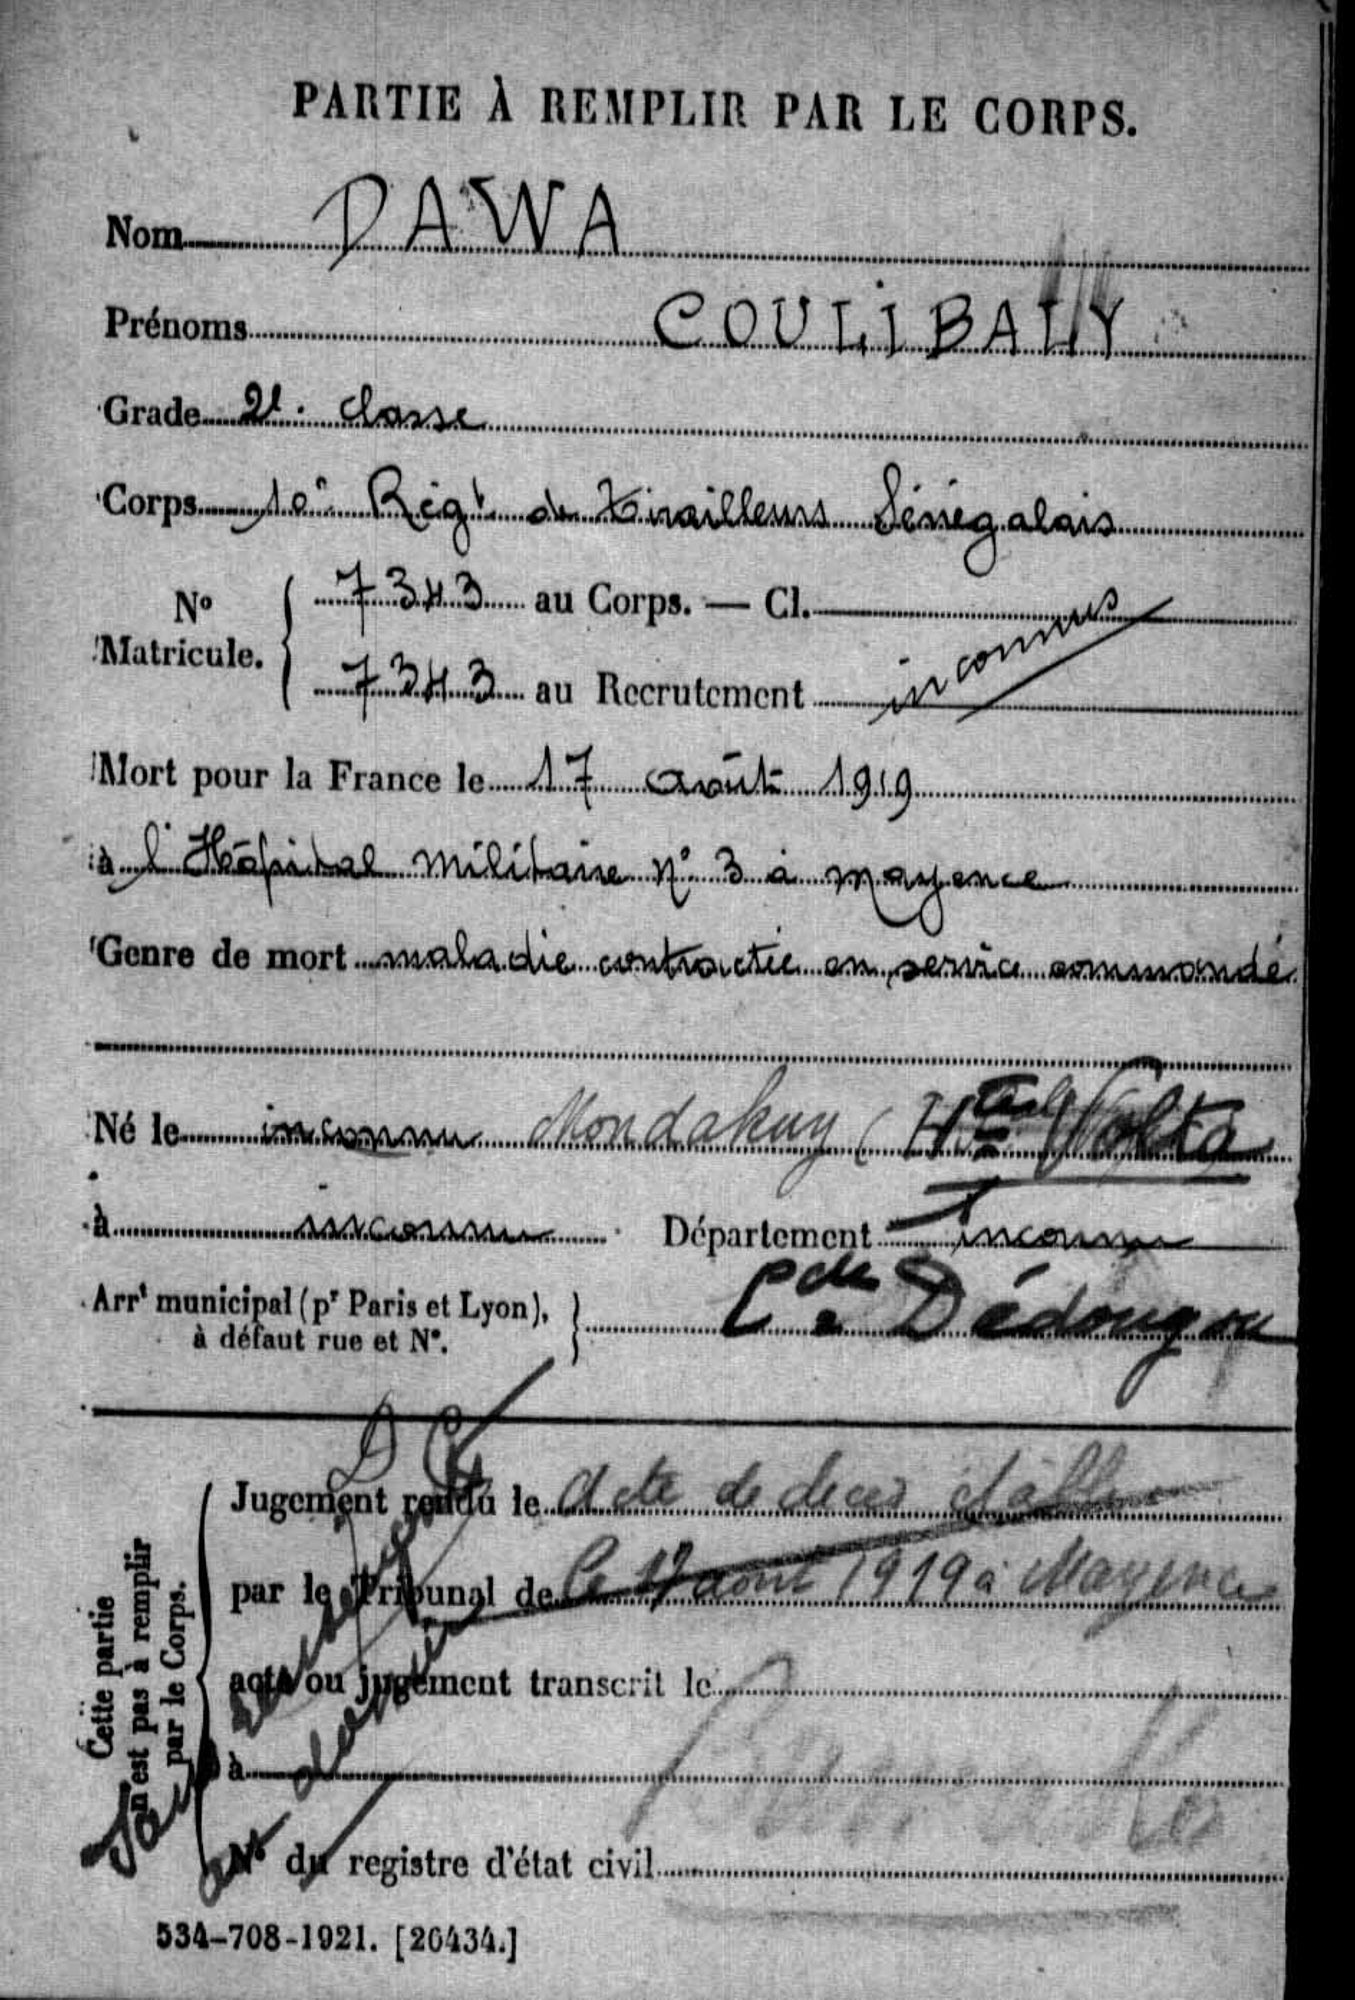 PARTIE À REMPLIR PAR LE CORPS.
Nom DAWA
Prénoms COULIBALY
Grade 2e. classe
Corps 10e Régt de Tirailleurs Sénégalais
No Matricule. 7343 au Corps. — Cl. inconnus
7343 au Recrutement
Mort pour la France le 17 août 1919
à l'Hôpital militaire No 3 à mayence
Genre de mort maladie contractée en service commandé
Né le inconnu Mondakuy (Hte Volta
à inconnu Département inconnu
Arrt municipal (pr Paris et Lyon), à défaut rue et No. Cde Dédougou
DC
Cette partie n'est pas à remplir par le Corps.
Jugement rendu le acte de deces établi
par le Tribunal de le 17 aout 1919 à Mayence
acte ou jugement transcrit le
à
No du registre d'état civil
Bamako
Sans
534-708-1921. [26434.]